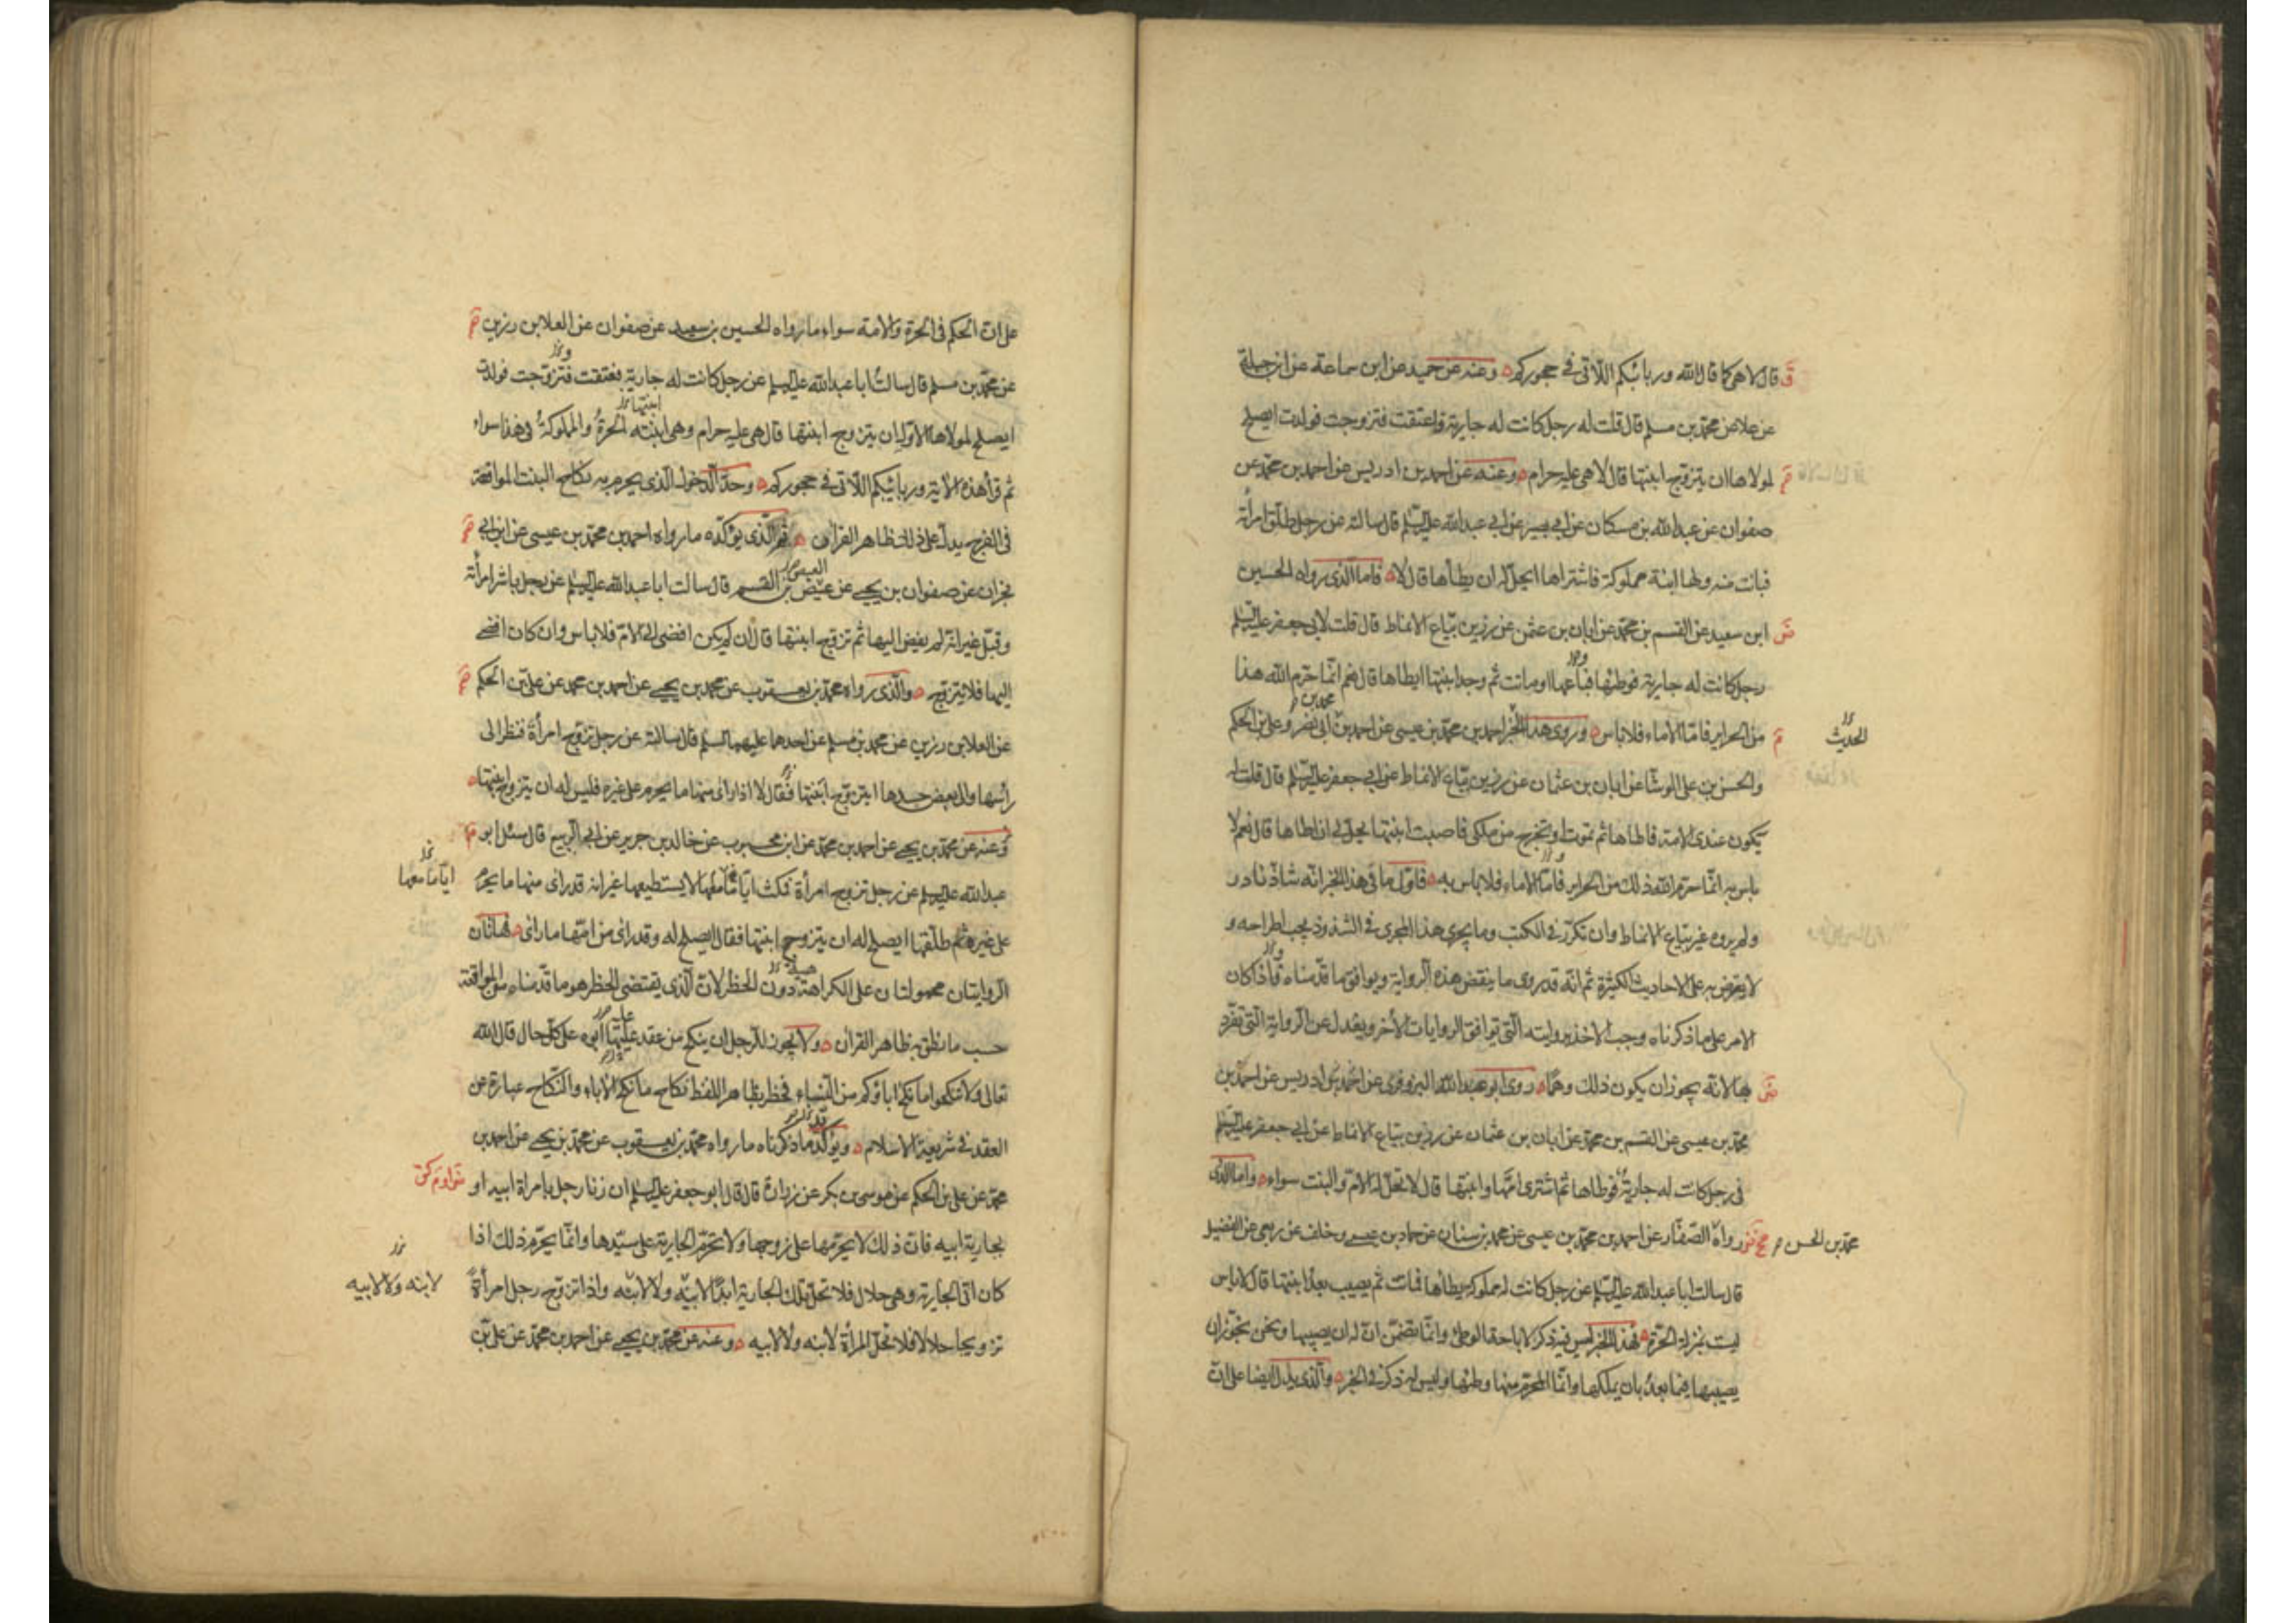 قال لا هى كما قال الله وربائبكم اللاتى فى حجوركم وعنه عن حميد عن ابن سماعة عن ابن جبلة
عن علا عن محمد بن مسلم قال قلت له رجل كانت له جارية واعتقت فتزوجت فولدت ايصلح
لمولاها ان يتزوج ابنتها قال لا هى عليه حرام وعنه عن احمد بن ادريس عن احمد بن محمد عن
صفوان عن عبد الله بن مسكان عن ابى بصير عن ابى عبد الله عليه السلم قال سالته عن رجل طلق امرأة
فبانت منه ولها ابنة مملوكة فاشتراها ايحل له ان يطأها قال لا فاما الذى رواه الحسين
ابن سعيد عن القسم بن محمد عن ابان بن عثمن عن رزين بياع الانماط قال قلت لابى جعفر عليه السلم
رجل كانت له جارية فوطئها فباعها او ماتت ثم وجد ابنتها ايطاها قال نعم انما حرم الله هذا
من الحراير فاما الاماء فلا باس وروى هذا الخبر احمد بن محمد بن عيسى عن احمد بن محمد بن ابى نصر وعلى بن الحكم
الحديث
والحسن بن على الوشا عن ابان بن عثمان عن رزين بياع الانماط عن ابى جعفر عليه السلم قال قلت له
يكون عندى الامة فاطاها ثم تموت او تخرج من ملكى فاصبت ابنتها يحل لى ان اطاها قال نعم لا
باس به انما حرم الله ذلك من الحراير فاما الاماء فلا باس به فاول ما فى هذا الخبر انه شاذ نادر
ولم يروه غير بياع الانماط وان تكرر فى الكتب وما يجرى هذا المجرى فى الشذوذ يجب اطراحه و
لا يعترض به على الاحاديث الكثيرة ثم انه قد روى ما ينقض هذه الرواية ويوافق ما قدمناه فاذا كان
الامر على ما ذكرناه وجب الاخذ بروايته التى توافق الروايات الأخر ويعدل عن الرواية التى تفرد
بها لانه يجوز ان يكون ذلك وهما روى ابو عبد الله البزوفرى عن احمد بن ادريس عن احمد بن
محمد بن عيسى عن القسم بن محمد عن ابان بن عثمان عن رزين بياع الانماط عن ابى جعفر عليه السلم
فى رجل كانت له جارية فوطاها ثم اشترى امها وابنتها قال لا تحل له الام والبنت سواء واما الذى
محمد بن الحسن
رواه الصفار عن احمد بن محمد بن عيسى عن محمد بن سنان عن حماد بن عيسى وخلف عن ربعى عن الفضيل
قال سالت ابا عبد الله عليه السلم عن رجل كانت له مملوكة يطأها فماتت ثم يصيب بعد ابنتها قال لا باس
ليست بمنزلة الحرة فهذا الخبر ليس فيه ذكر لاباحة الوطى وانما تضمن ان له ان يصيبها ونحن نجوز ان
يصيبها فيما بعد بان يملكها وانما المحرم منها وطئها وليس له ذكر فى الخبر والذى يدل ايضا على ان
على ان الحكم فى الحرة والامة سواء ما رواه الحسين بن سعيد عن صفوان عن العلا بن رزين
عن محمد بن مسلم قال سالت ابا عبد الله عليه السلم عن رجل كانت له جارية فعتقت فتزوجت فولدت
ايصلح لمولاها الاول ان يتزوج ابنتها قال هى عليه حرام وهى ابنته الحرة والمملوكة فى هذا سواء
ثم قرأ هذه الاية وربائبكم اللاتى فى حجوركم وحد الدخول الذى يحرم به نكاح البنت المواقعة
فى الفرج يدل على ذلك ظاهر القران والذى يؤكده ما رواه احمد بن محمد بن عيسى عن ابن ابى
نجران عن صفوان بن يحيى عن عيص بن القسم قال سالت ابا عبد الله عليه السلم عن رجل باشر امرأة
وقبل غير انه لم يفض اليها ثم تزوج ابنتها قال ان لم يكن افضى الى الام فلا باس وان كان افضى
اليها فلا يتزوج والذى رواه محمد بن يعقوب عن محمد بن يحيى عن احمد بن محمد عن على بن الحكم
عن العلا بن رزين عن محمد بن مسلم عن احدهما عليهما السلم قال سالته عن رجل تزوج امرأة فنظر الى
رأسها والى بعض جسدها ايتزوج ابنتها فقال لا اذا رأى منها ما يحرم على غيره فليس له ان يتزوج ابنتها
وعنه عن محمد بن يحيى عن احمد بن محمد عن ابن محبوب عن خالد بن جرير عن ابى الربيع قال سئل ابو
عبد الله عليه السلم عن رجل تزوج امرأة فمكث اياما معها لا يستطيعها غير انه قد راى منها ما يحرم
اياما معها
على غيره ثم طلقها ايصلح له ان يتزوج ابنتها فقال ايصلح له وقد راى من امها ما راى فهاتان
الروايتان محمولتان على الكراهة دون الحظر لان الذى يقتضى الحظر هو ما قدمناه من المواقعة
حسب ما نطق به ظاهر القران ولا يجوز للرجل ان ينكح من عقد عليها ابوه على كل حال قال الله
تعالى ولا تنكحوا ما نكح اباؤكم من النساء فحظر بظاهر اللفظ نكاح ما نكح الاباء والنكاح عبارة عن
العقد فى شريعة الاسلام ويؤكد ما ذكرناه ما رواه محمد بن يعقوب عن محمد بن يحيى عن احمد بن
محمد عن على بن الحكم عن موسى بن بكر عن زرارة قال قال ابو جعفر عليه السلم ان زنا رجل بامراة ابيه او
بجارية ابيه فان ذلك لا يحرمها على زوجها ولا تحرم الجارية على سيدها وانما يحرم ذلك اذا
كان اتى الجارية وهى حلال فلا تحل تلك الجارية ابدا لابيه ولا لابنه واذا تزوج رجل امرأة
لابنه ولا لابيه
تزويجا حلالا فلا تحل المرأة لابنه ولا لابيه وعنه عن محمد بن يحيى عن احمد بن محمد عن على بن